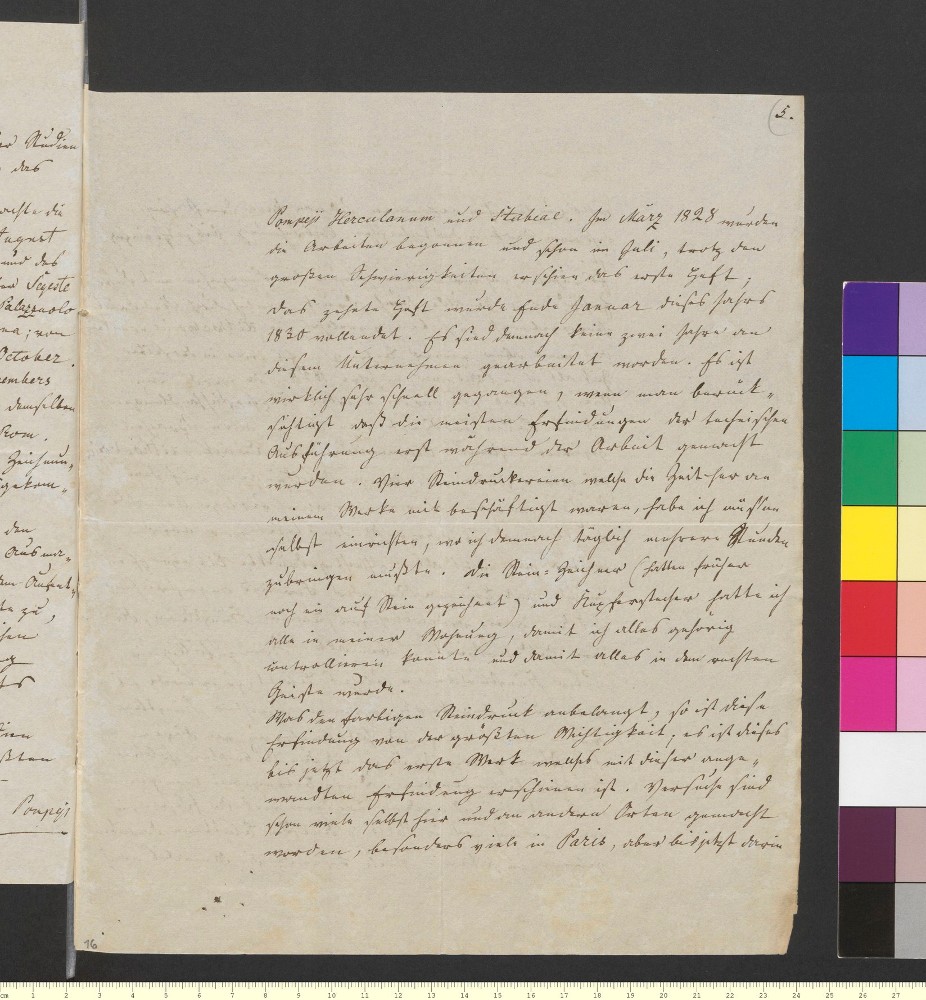 er Studien
das
achte die
August
und des
der Segeste
Palazzuolo
na; von
October.
embers
demselben
Rom.
Zeichnun„
gekom„
den
Ausma„
dem Aufent„
te zu,
hen
g
ts
ien
ßten
Pompeji
5.
Pompeji Herculanum und Stabiae. Im März 1828 wurden
die Arbeiten begonnen und schon im Juli, trotz den
großen Schwierigkeiten erschien das erste Heft,
das zehnte Heft wurde Ende Januar dieses Jahrs
1830 vollendet. Es sind demnach keine zwei Jahre an
diesem Unternehmen gearbeitet worden. Es ist
wirklich sehr schnell gegangen, wenn man berück„
sichtigt daß die meisten Erfindungen der technischen
Ausführung erst während der Arbeit gemacht
wurden. Vier Steindruckereien welche die Zeit her an
meinem Werke mit beschäftigt waren, habe ich müssen
selbst einrichten, wo ich demnach täglich mehrere Stunden
zubringen mußte. Die Stein=Zeichner (hatten früher
noch nie auf Stein gezeichnet) und Kupferstecher hatte ich
alle in meiner Wohnung, damit ich alles gehörig
controllieren konnte und damit alles in dem rechten
Geiste wurde.
Was den farbigen Steindruck anbelangt, so ist diese
Erfindung von der größten Wichtigkeit; es ist dieses
bis jetzt das erste Werk welches mit dieser ange„
wandten Erfindung erschienen ist. Versuche sind
schon viele selbst hier und an andern Orten gemacht
worden, besonders viele in Paris, aber bis jetzt darin
16
cm 1 2 3 4 5 6 7 8 9 10 11 12 13 14 15 16 17 18 19 20 21 22 23 24 25 26 27